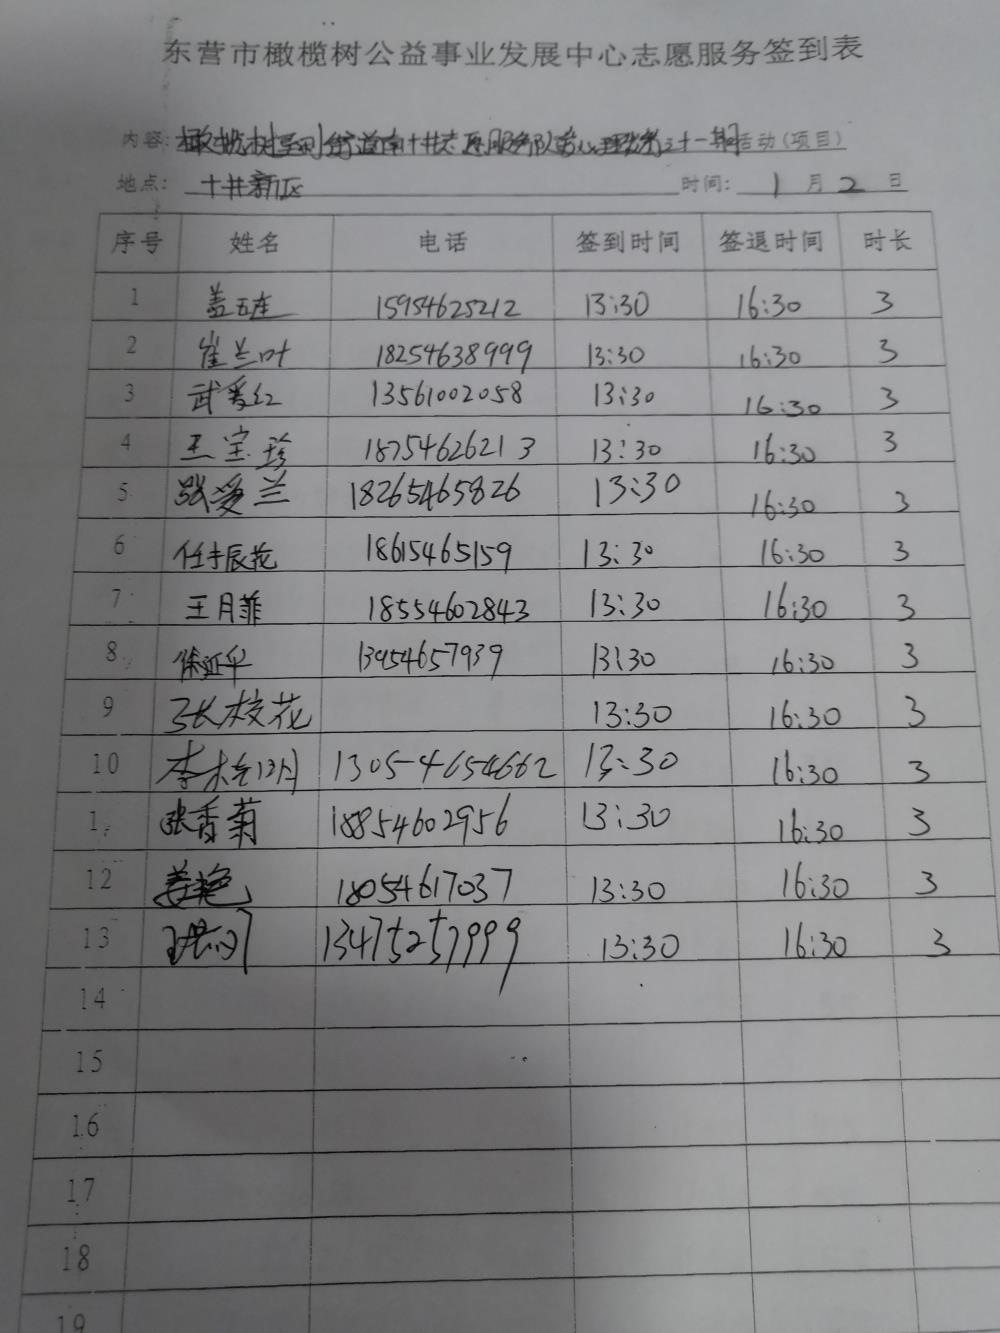 东营市橄榄树公益事业发展中心志愿服务签到表
内容: 橄榄树垦利街道南十井志愿服务队爱心理发第三十一期活动(项目)
地点: 十井新区 时间: 1月2日
序号 姓名 电话 签到时间 签退时间 时长
1 盖五庄 15954625212 13:30 16:30 3
2 崔兰叶 18254638999 13:30 16:30 3
3 武爱红 13561002058 13:30 16:30 3
4 王宝珍 18754626213 13:30 16:30 3
5 张爱兰 18265465826 13:30 16:30 3
6 任辰花 18615465159 13:30 16:30 3
7 王月菲 18554602843 13:30 16:30 3
8 徐延华 13954657939 13:30 16:30 3
9 张校花 13:30 16:30 3
10 李 13054654662 13:30 16:30 3
1 张香菊 18854602956 13:30 16:30 3
12 姜艳 18054617037 13:30 16:30 3
13 13475257999 13:30 16:30 3
14
15
16
17
18
19